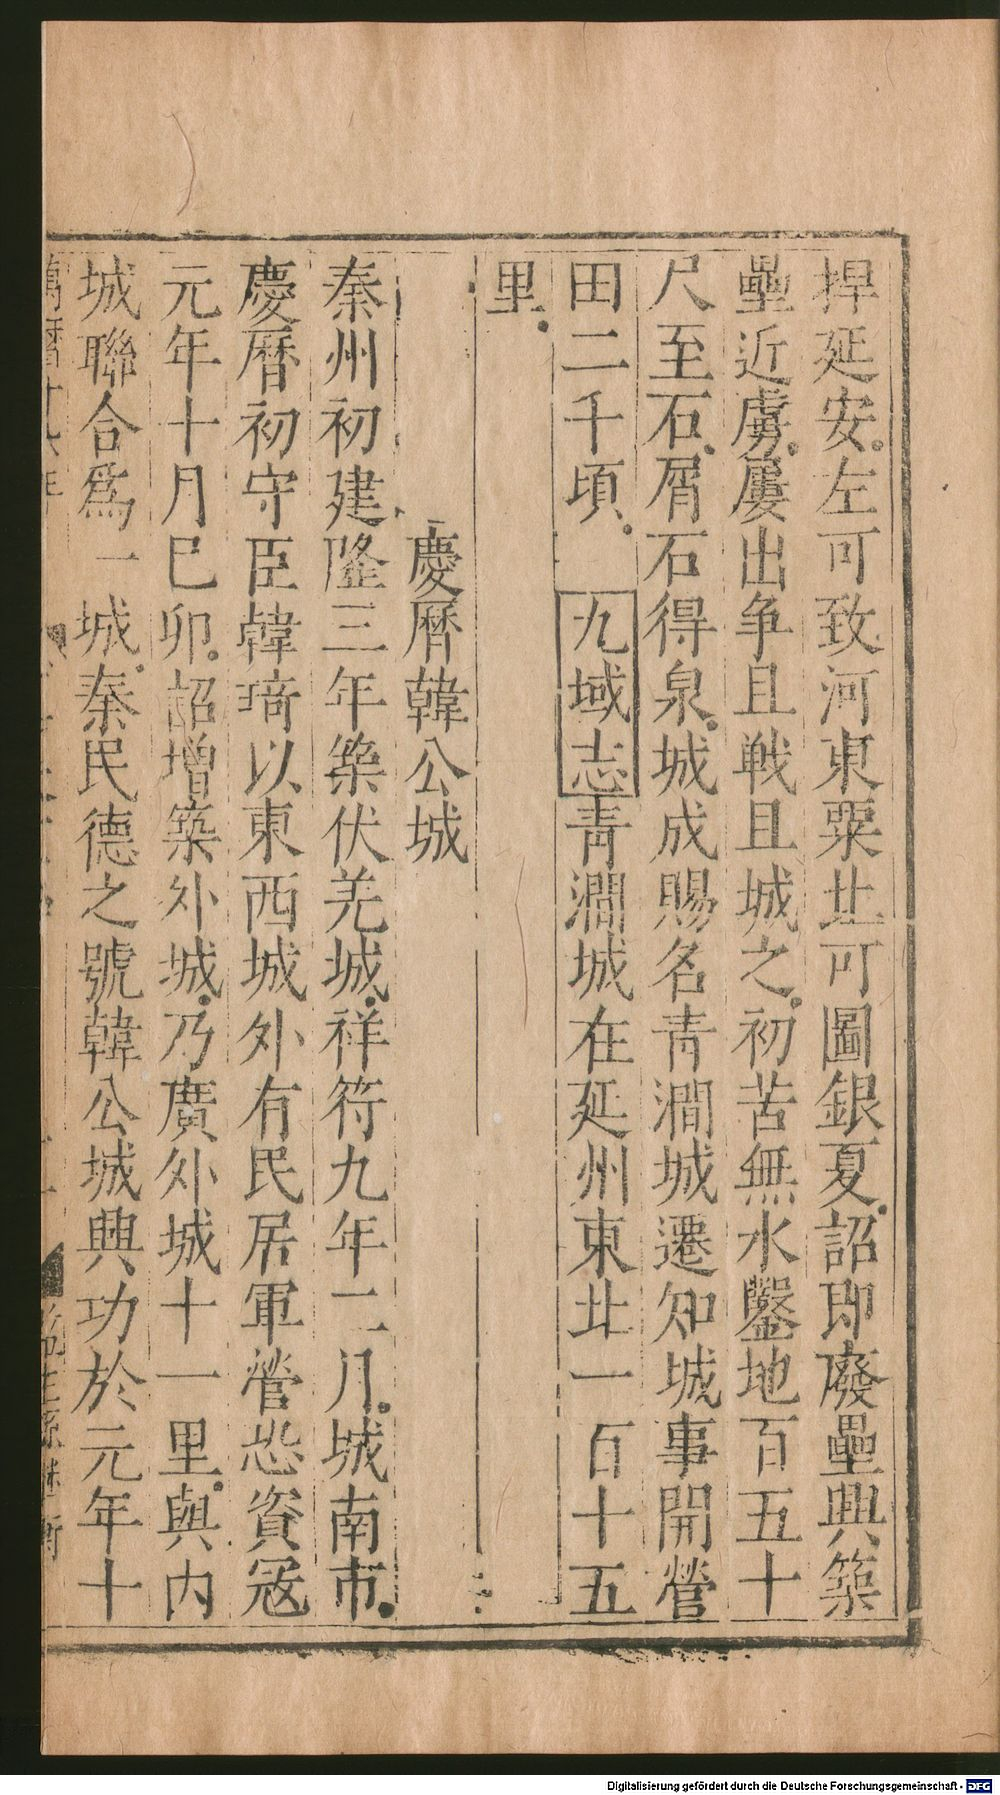 捍延安左可致河東粟北可圖銀夏詔即廢壘興築
壘近虜屢出爭且戰且城之初苦無水鑿地百五十
尺至石屑石得泉城成賜名青澗城遷知城事開營
田二千頃九域志青澗城在延州東北一百十五
里
慶曆韓公城
秦州初建隆三年築伏羌城祥符九年二月城南市
慶曆初守臣韓琦以東西城外有民居軍營恐資寇
元年十月巳卯詔增築外城乃廣外城十一里與內
城聯合爲一城秦民德之號韓公城興功於元年十
Digitalisierung gefördert durch die Deutsche Forschungsgemeinschaft - DFG